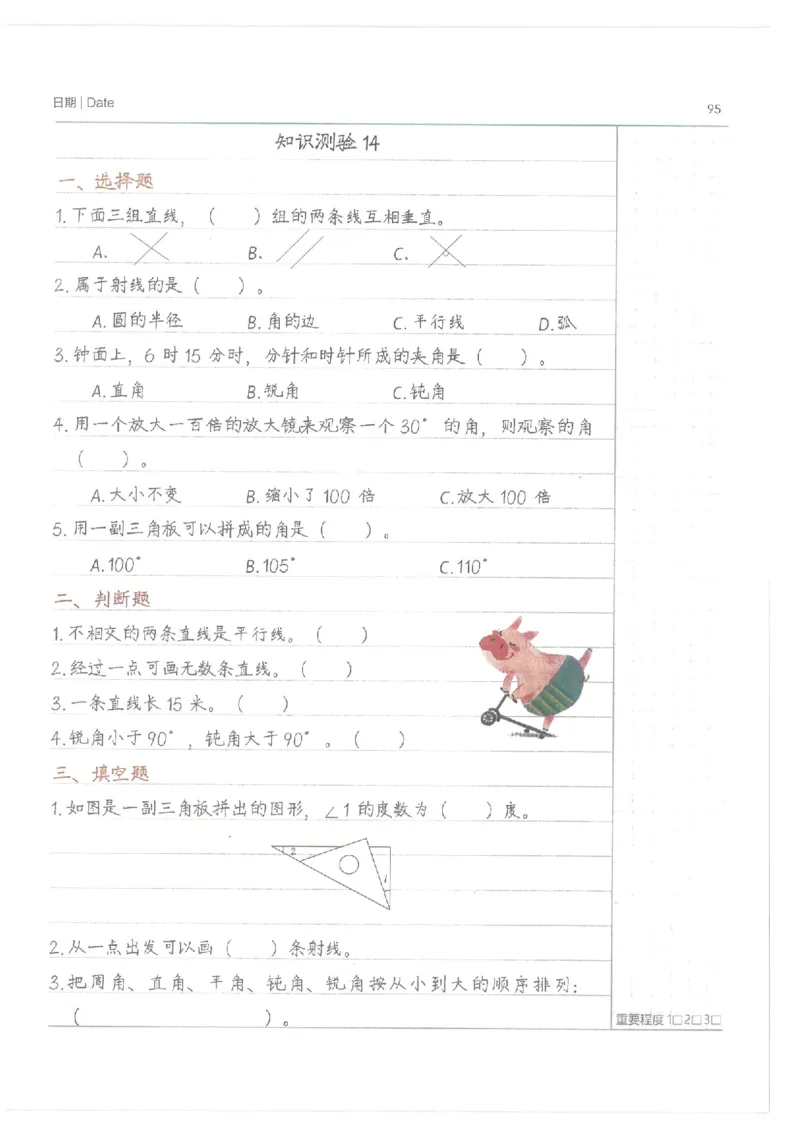 日期 | Date
95
知识测验 14
一、选择题
1.下面三组直线，（  ）组的两条线互相垂直。
A. B. C.
2.属于射线的是（  ）。
A.圆的半径 B.角的边 C.平行线 D.弧
3.钟面上，6 时 15 分时，分针和时针所成的夹角是（  ）。
A.直角 B.锐角 C.钝角
4.用一个放大一百倍的放大镜来观察一个30° 的角，则观察的角
（  ）。
A.大小不变 B.缩小了 100 倍 C.放大 100 倍
5.用一副三角板可以拼成的角是（  ）。
A.100° B.105° C.110°
二、判断题
1.不相交的两条直线是平行线。（  ）
2.经过一点可画无数条直线。（  ）
3.一条直线长 15 米。（  ）
4.锐角小于90°，钝角大于90°。（  ）
三、填空题
1.如图是一副三角板拼出的图形，∠1 的度数为（  ）度。
2
1
2.从一点出发可以画（  ）条射线。
3.把周角、直角、平角、钝角、锐角按从小到大的顺序排列：
（  ）。
重要程度 1□2□3□